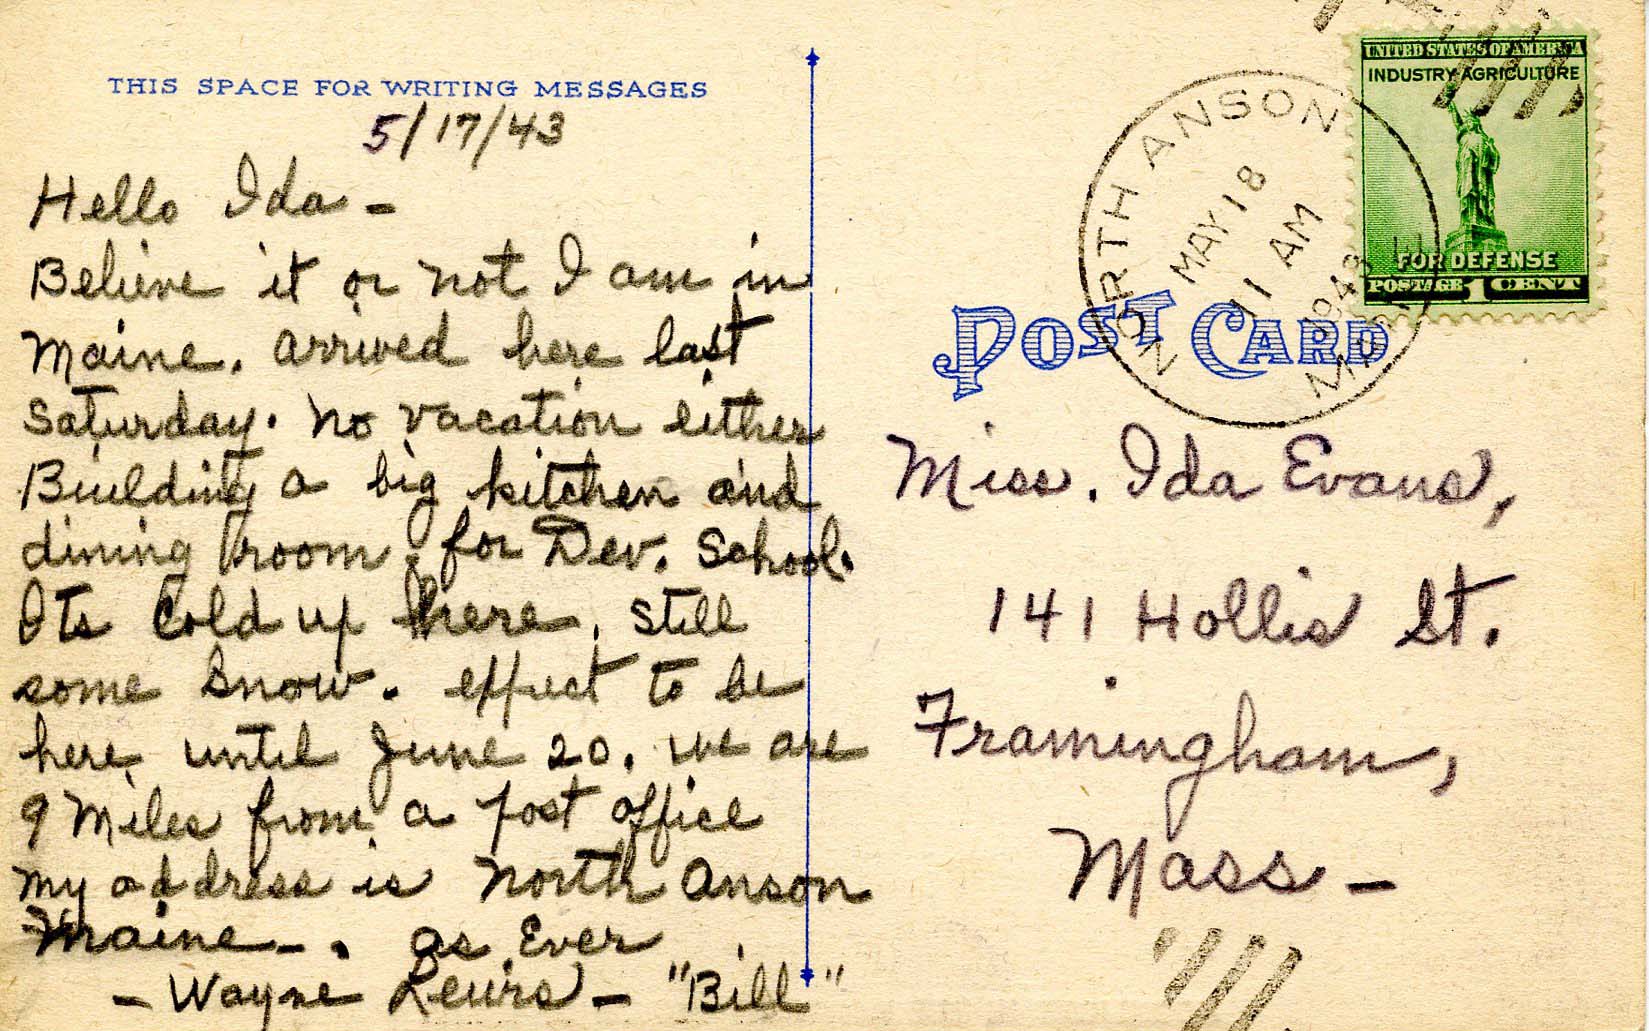 THIS SPACE FOR WRITING MESSAGES
5/17/43
Hello Ida -
Believe it or not I am in
Maine. arrived here last
Saturday. no vacation either
Building a big kitchen and
dining room. for Dev. School.
Its Cold up here. still
some snow. expect to be
here until June 20. we are
9 Miles from a post office
my address is North Anson
Maine - . as Ever
- Wayne Lewis - "Bill"
NORTH ANSON
MAY 18
11 AM
1943
MAINE
UNITED STATES OF AMERICA
INDUSTRY AGRICULTURE
FOR DEFENSE
POSTAGE 1 CENT
POST CARD
Miss. Ida Evans,
141 Hollis St.
Framingham,
Mass -